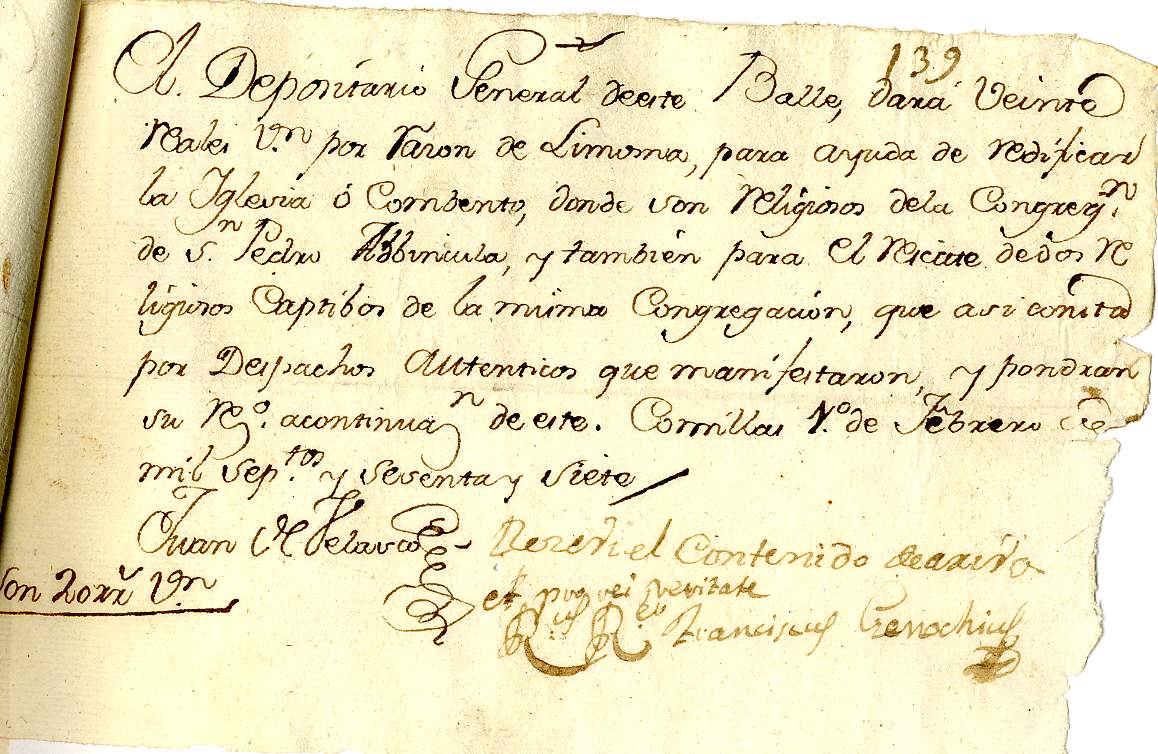 139
El Depositario General deeste Balle, dará Veinte
reales V.n por razon de Limosna, para ayuda de redificar
la Iglesia ó Combento, donde son religiosos dela Congreg.n
de S.n Pedro Abbincula, y también para el rescate dedos re
ligiosos Captibos de la misma Congregación, que asi consta
por Despachos Autenticos que manifestaron, y pondran
su re.o acontinua.n de este. Comillas 1.o de Febrero de
mil sep.tos y sesenta y siete
Juan de Velasco
Rezevi el Contenido de arivo
et pro rei veritate
Franciscus
Son 20 rr.s V.n